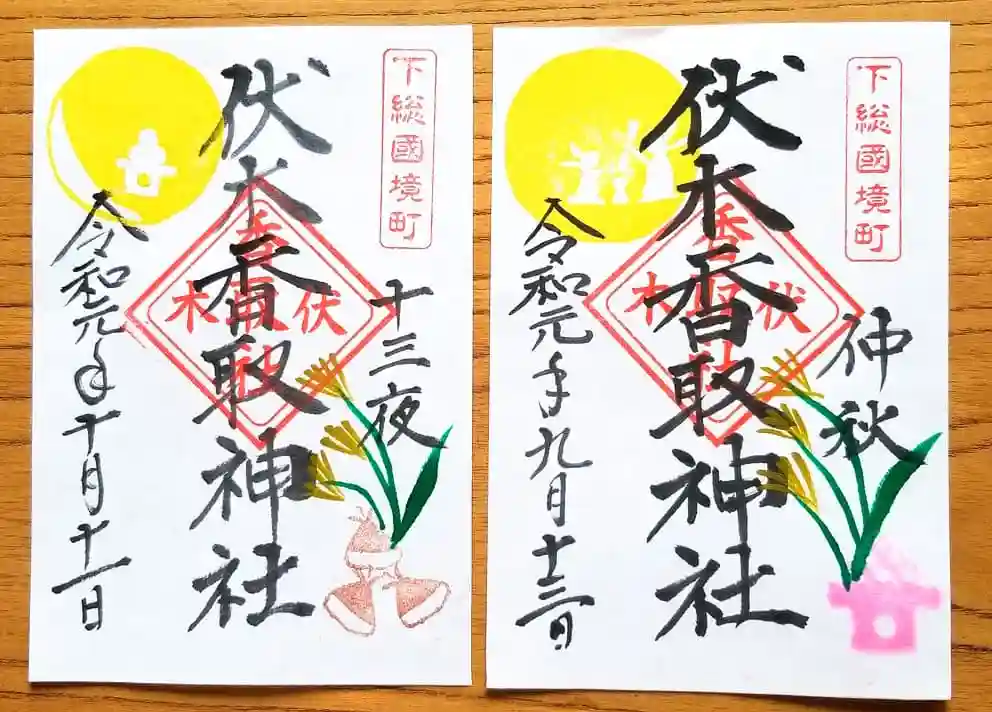 下総國境町
十三夜
伏木香取神社
令和元年十月十一日
下総國境町
仲秋
伏木香取神社
令和元年九月十三日